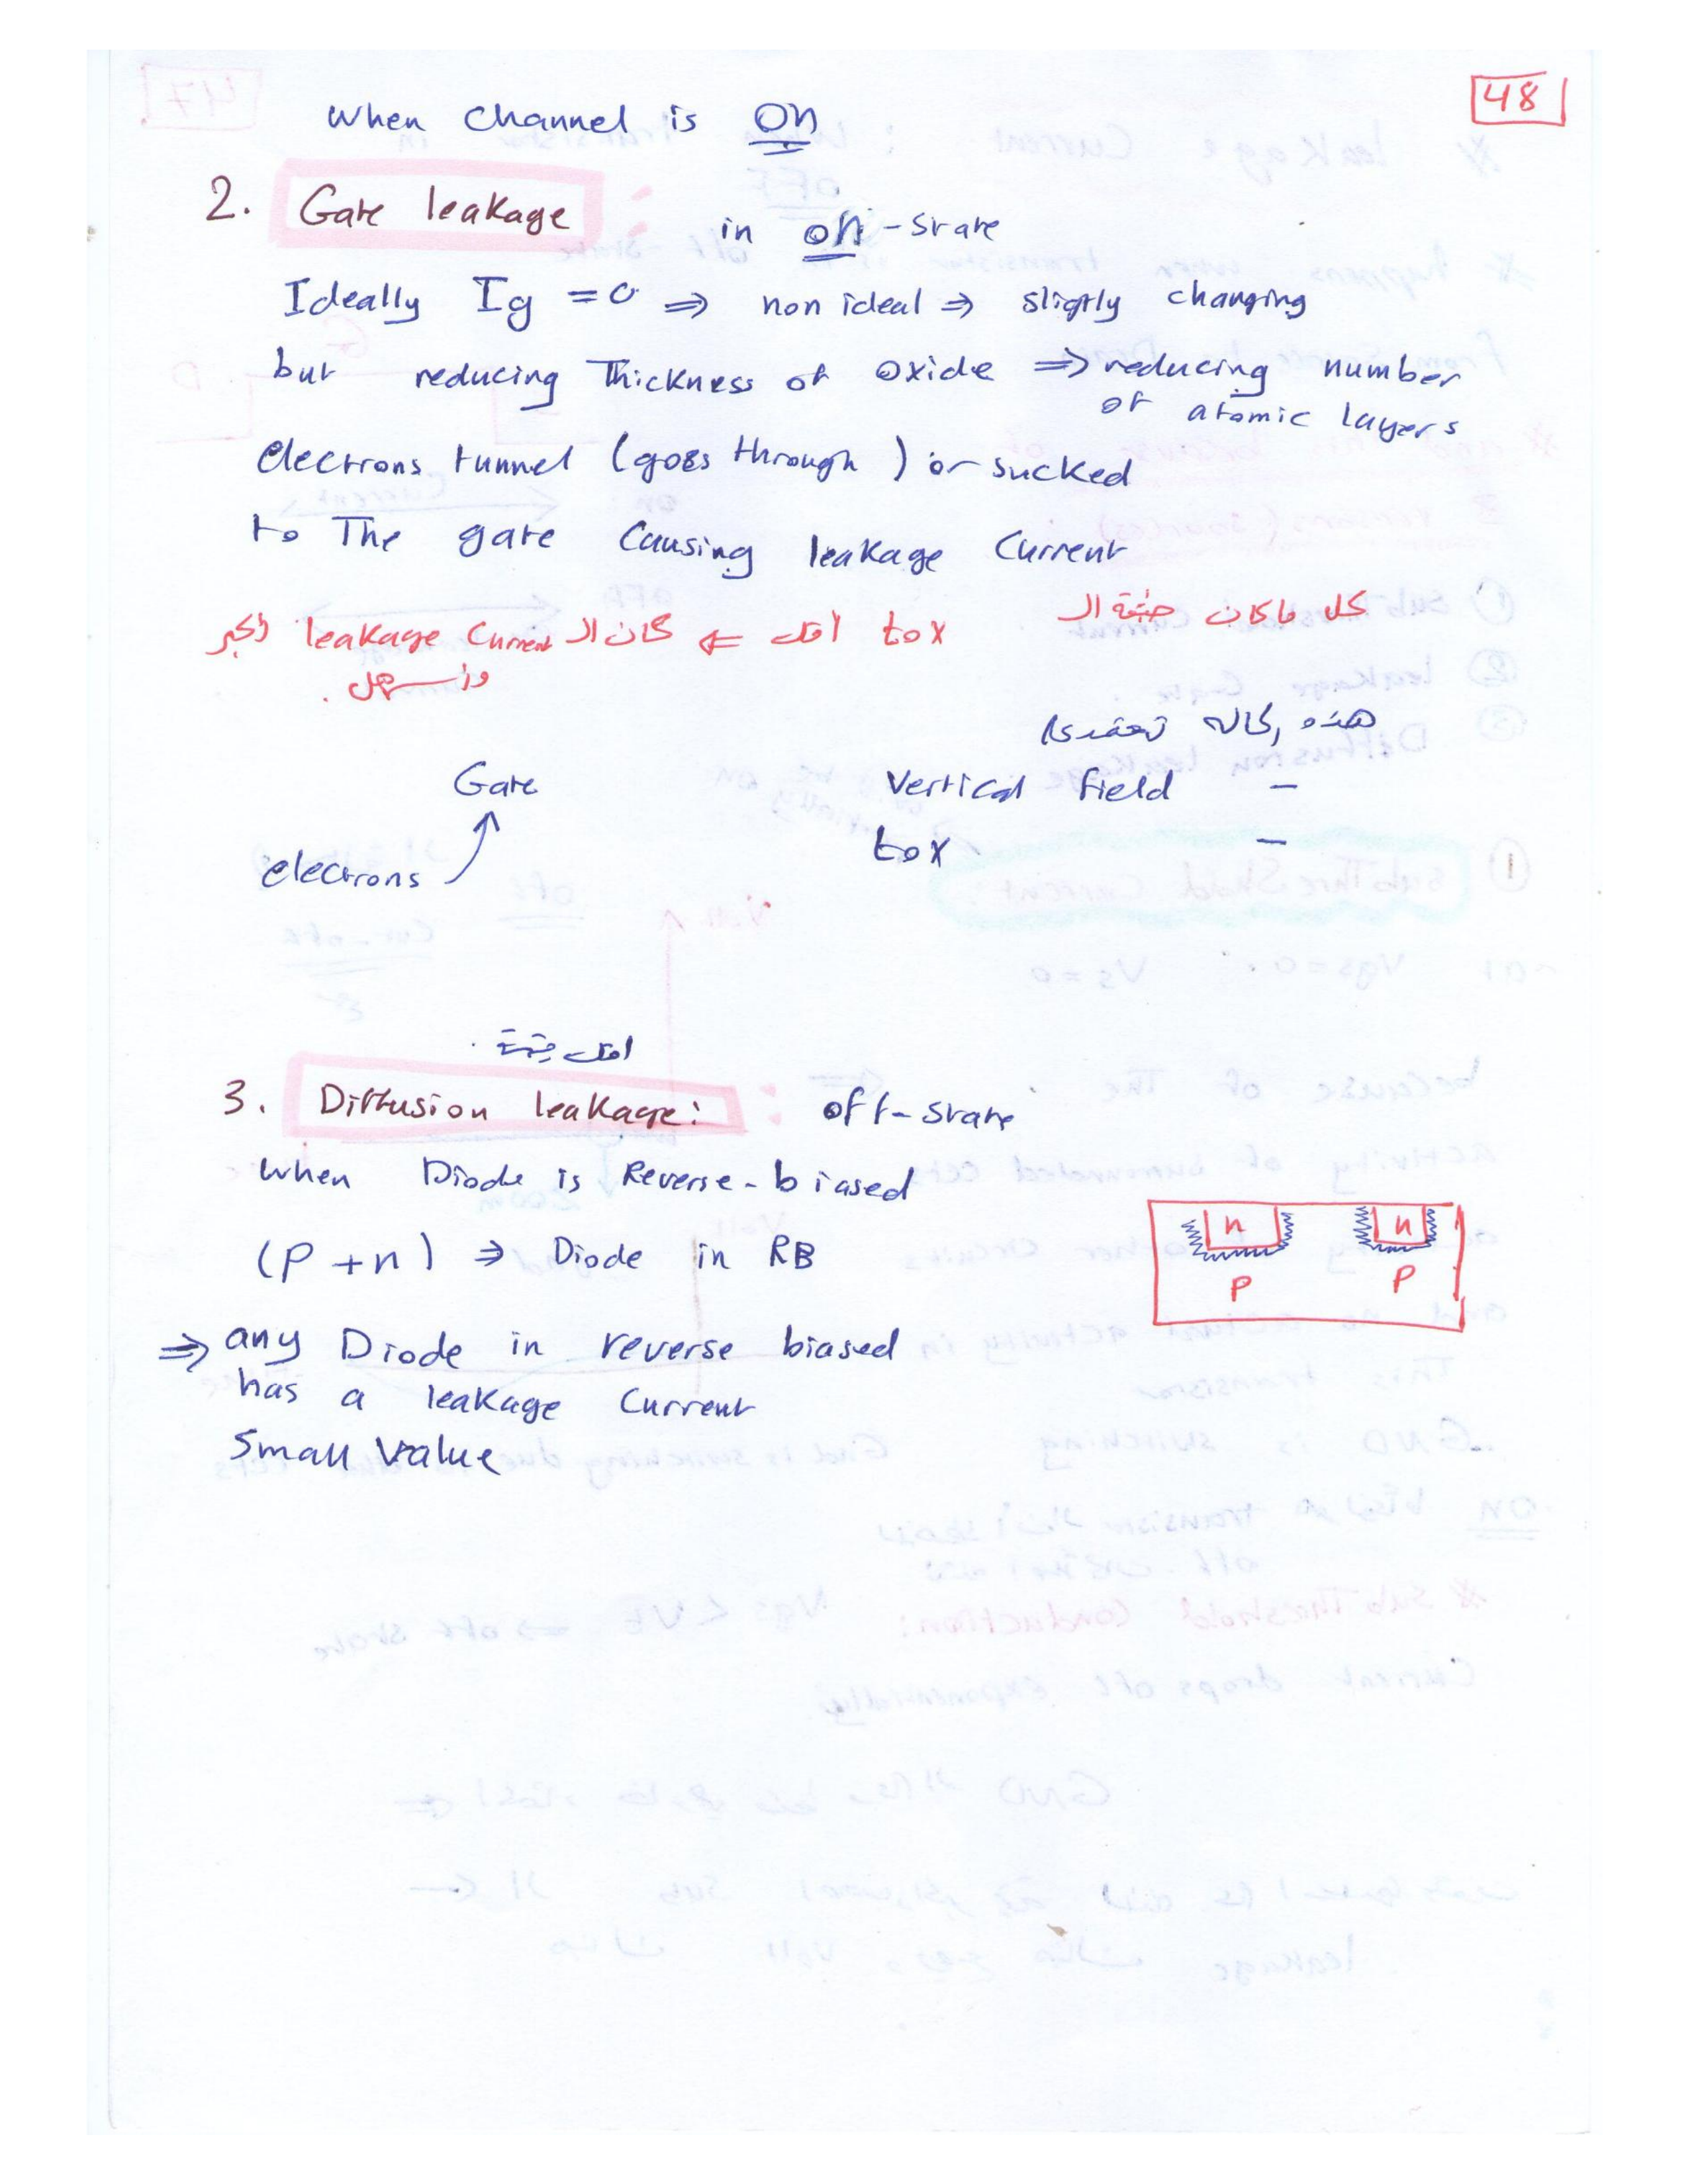 48
When channel is On
2. Gate leakage : in on-state
Ideally Ig = 0 ⇒ non ideal ⇒ sligtly changing
but reducing Thickness of oxide ⇒ reducing number
of atomic layers
electrons tunnel (goes through) or sucked
to The gate causing leakage Current
كل ما كان الـ tox اقل ⇐ كان الـ leakage Current اكبر
واسهل .
هذه
Gate
Vertical field –
electrons
tox –
اقل
3. Diffusion leakage: off-state
When Diode is Reverse-biased
(P + n) ⇒ Diode in RB
n n
P P
⇒ any Diode in reverse biased
has a leakage Current
Small Value